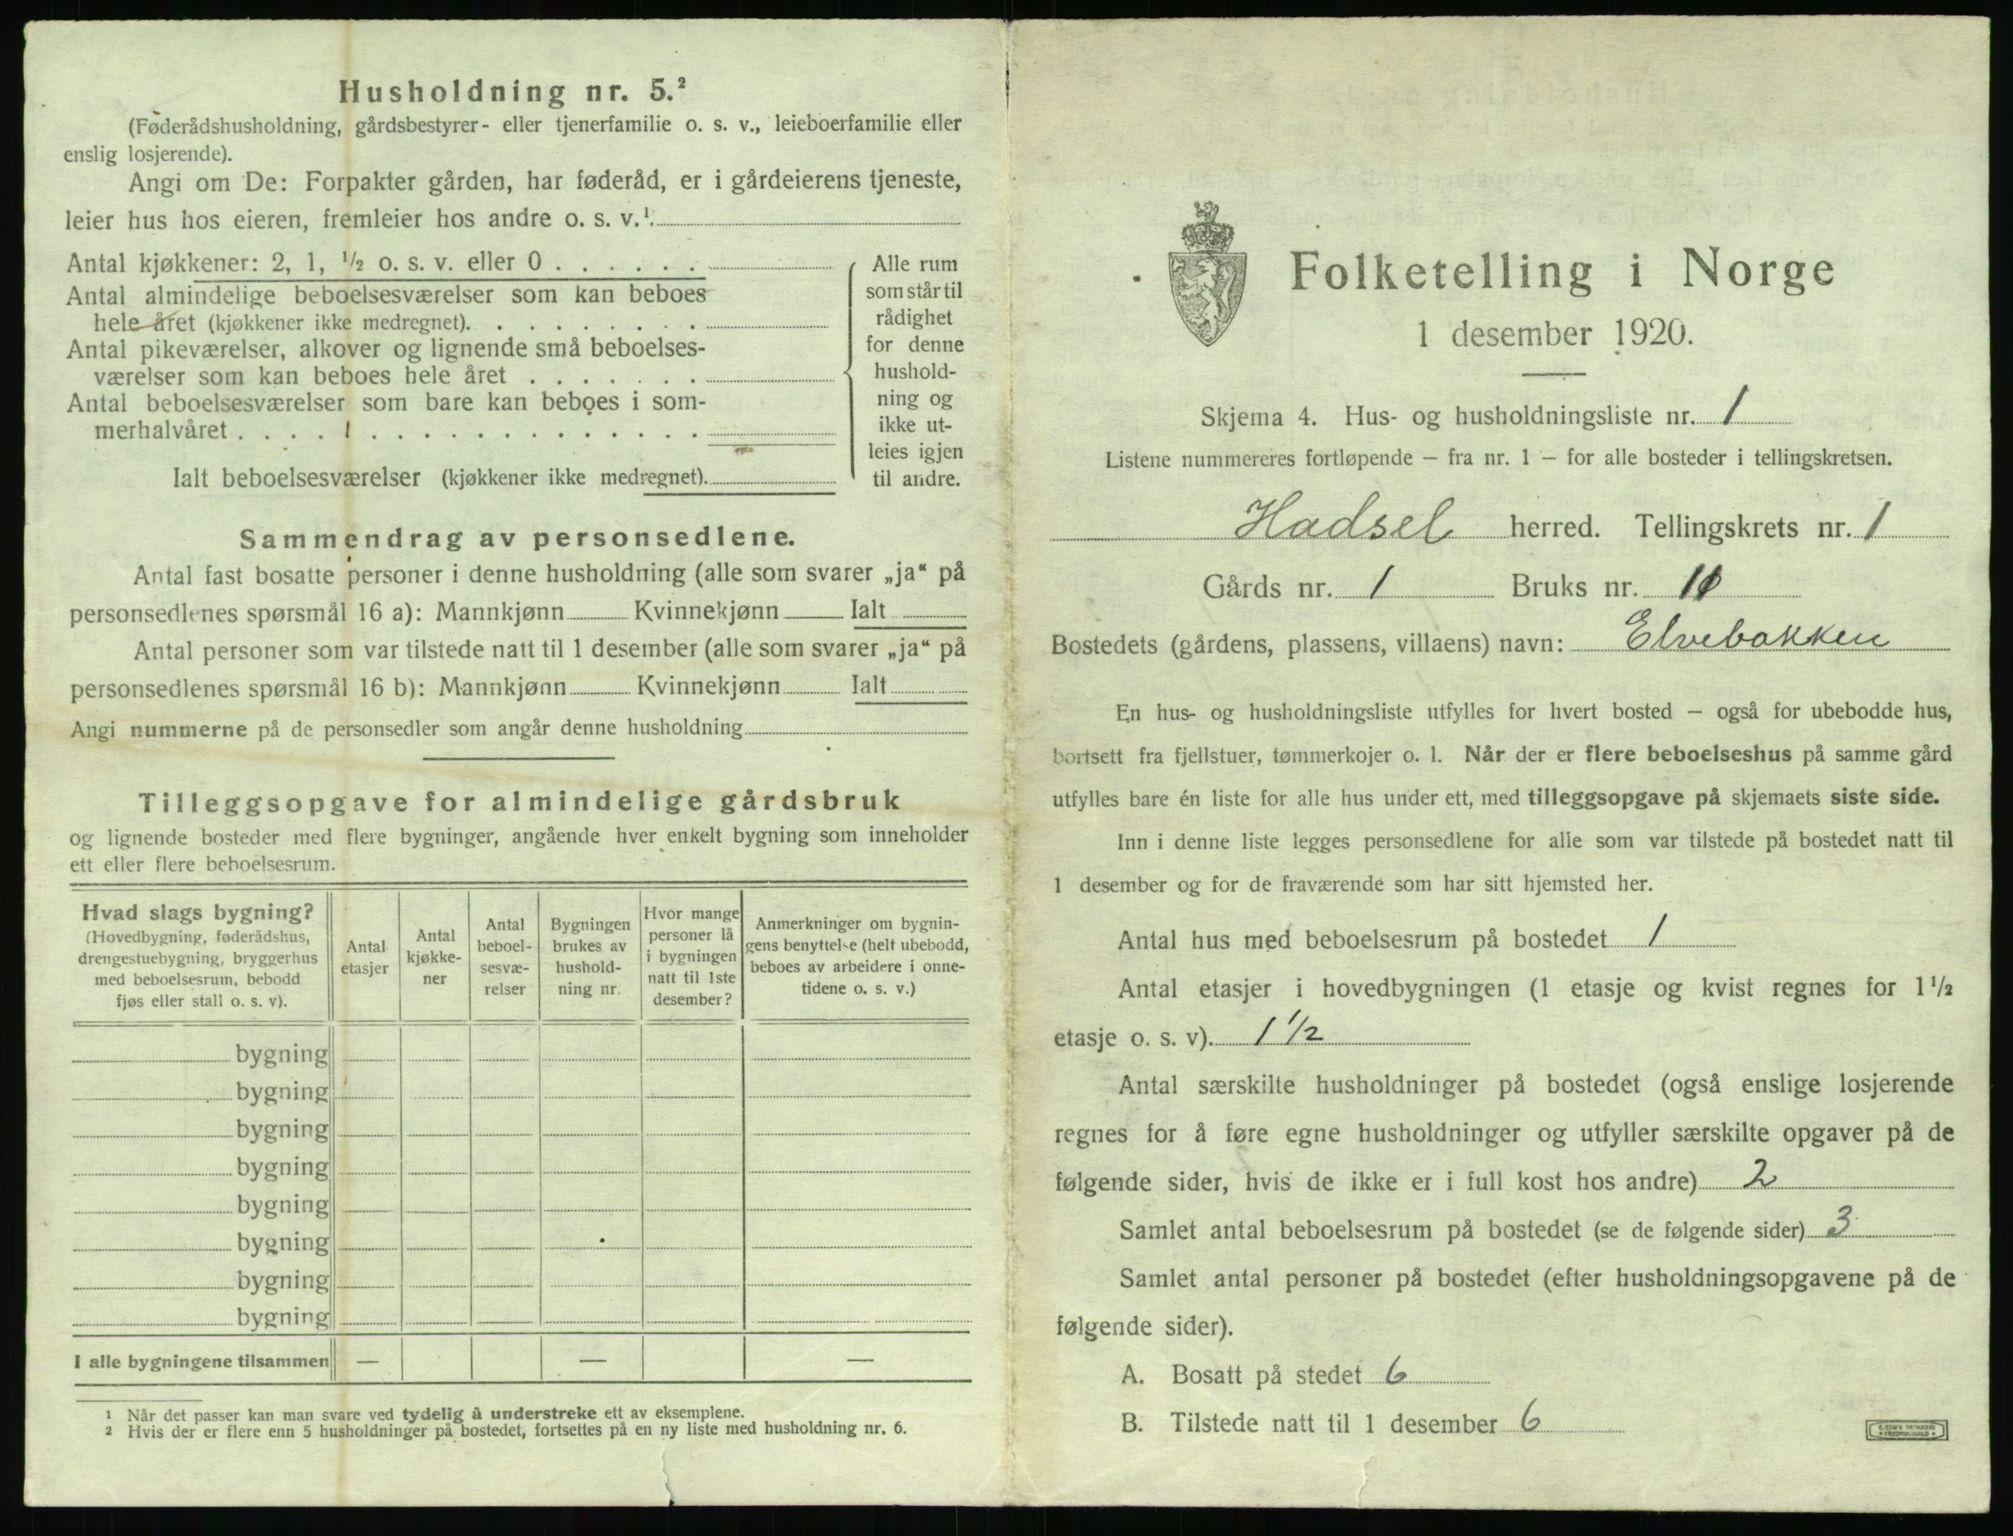 Husholdning nr. 5.²
(Føderådshusholdning, gårdsbestyrer- eller tjenerfamilie o. s. v., leieboerfamilie eller
enslig losjerende).
Angi om De: Forpakter gården, har føderåd, er i gårdeierens tjeneste,
leier hus hos eieren, fremleier hos andre o. s. v.¹
Antal kjøkkener: 2, 1, ½ o. s. v. eller 0 . . . . . .
Antal almindelige beboelsesværelser som kan beboes
hele året (kjøkkener ikke medregnet). . . . . . . . .
Antal pikeværelser, alkover og lignende små beboelses-
værelser som kan beboes hele året . . . . . . .
Antal beboelsesværelser som bare kan beboes i som-
merhalvåret . . . . . . . . . . . . . . . . .
Ialt beboelsesværelser (kjøkkener ikke medregnet).
Alle rum
som står til
rådighet
for denne
hushold-
ning og
ikke ut-
leies igjen
til andre.
Sammendrag av personsedlene.
Antal fast bosatte personer i denne husholdning (alle som svarer „ja“ på
personsedlenes spørsmål 16 a): Mannkjønn Kvinnekjønn Ialt
Antal personer som var tilstede natt til 1 desember (alle som svarer „ja“ på
personsedlenes spørsmål 16 b): Mannkjønn Kvinnekjønn Ialt
Angi nummerne på de personsedler som angår denne husholdning
Tilleggsopgave for almindelige gårdsbruk
og lignende bosteder med flere bygninger, angående hver enkelt bygning som inneholder
ett eller flere beboelsesrum.
Hvad slags bygning?
(Hovedbygning, føderådshus,
drengestuebygning, bryggerhus
med beboelsesrum, bebodd
fjøs eller stall o. s. v).
Antal
etasjer
Antal
kjøkke-
ner
Antal
beboel-
sesvæ-
relser
Bygningen
brukes av
hushold-
ning nr.
Hvor mange
personer lå
i bygningen
natt til 1ste
desember?
Anmerkninger om bygnin-
gens benyttelse (helt ubebodd,
beboes av arbeidere i onne-
tidene o. s. v.)
bygning
bygning
bygning
bygning
bygning
bygning
bygning
bygning
I alle bygningene tilsammen — — —
¹ Når det passer kan man svare ved tydelig å understreke ett av eksemplene.
² Hvis der er flere enn 5 husholdninger på bostedet, fortsettes på en ny liste med husholdning nr. 6.
Folketelling i Norge
1 desember 1920.
Skjema 4. Hus- og husholdningsliste nr. 1
Listene nummereres fortløpende – fra nr. 1 – for alle bosteder i tellingskretsen.
Hadsel herred. Tellingskrets nr. 1
Gårds nr. 1 Bruks nr. 11
Bostedets (gårdens, plassens, villaens) navn: Elvebakken
En hus- og husholdningsliste utfylles for hvert bosted – også for ubebodde hus,
bortsett fra fjellstuer, tømmerkojer o. l. Når der er flere beboelseshus på samme gård
utfylles bare én liste for alle hus under ett, med tilleggsopgave på skjemaets siste side.
Inn i denne liste legges personsedlene for alle som var tilstede på bostedet natt til
1 desember og for de fraværende som har sitt hjemsted her.
Antal hus med beboelsesrum på bostedet 1
Antal etasjer i hovedbygningen (1 etasje og kvist regnes for 1½
etasje o. s. v). 1½
Antal særskilte husholdninger på bostedet (også enslige losjerende
regnes for å føre egne husholdninger og utfyller særskilte opgaver på de
følgende sider, hvis de ikke er i full kost hos andre) 2
Samlet antal beboelsesrum på bostedet (se de følgende sider) 3
Samlet antal personer på bostedet (efter husholdningsopgavene på de
følgende sider).
A. Bosatt på stedet 6
B. Tilstede natt til 1 desember 6